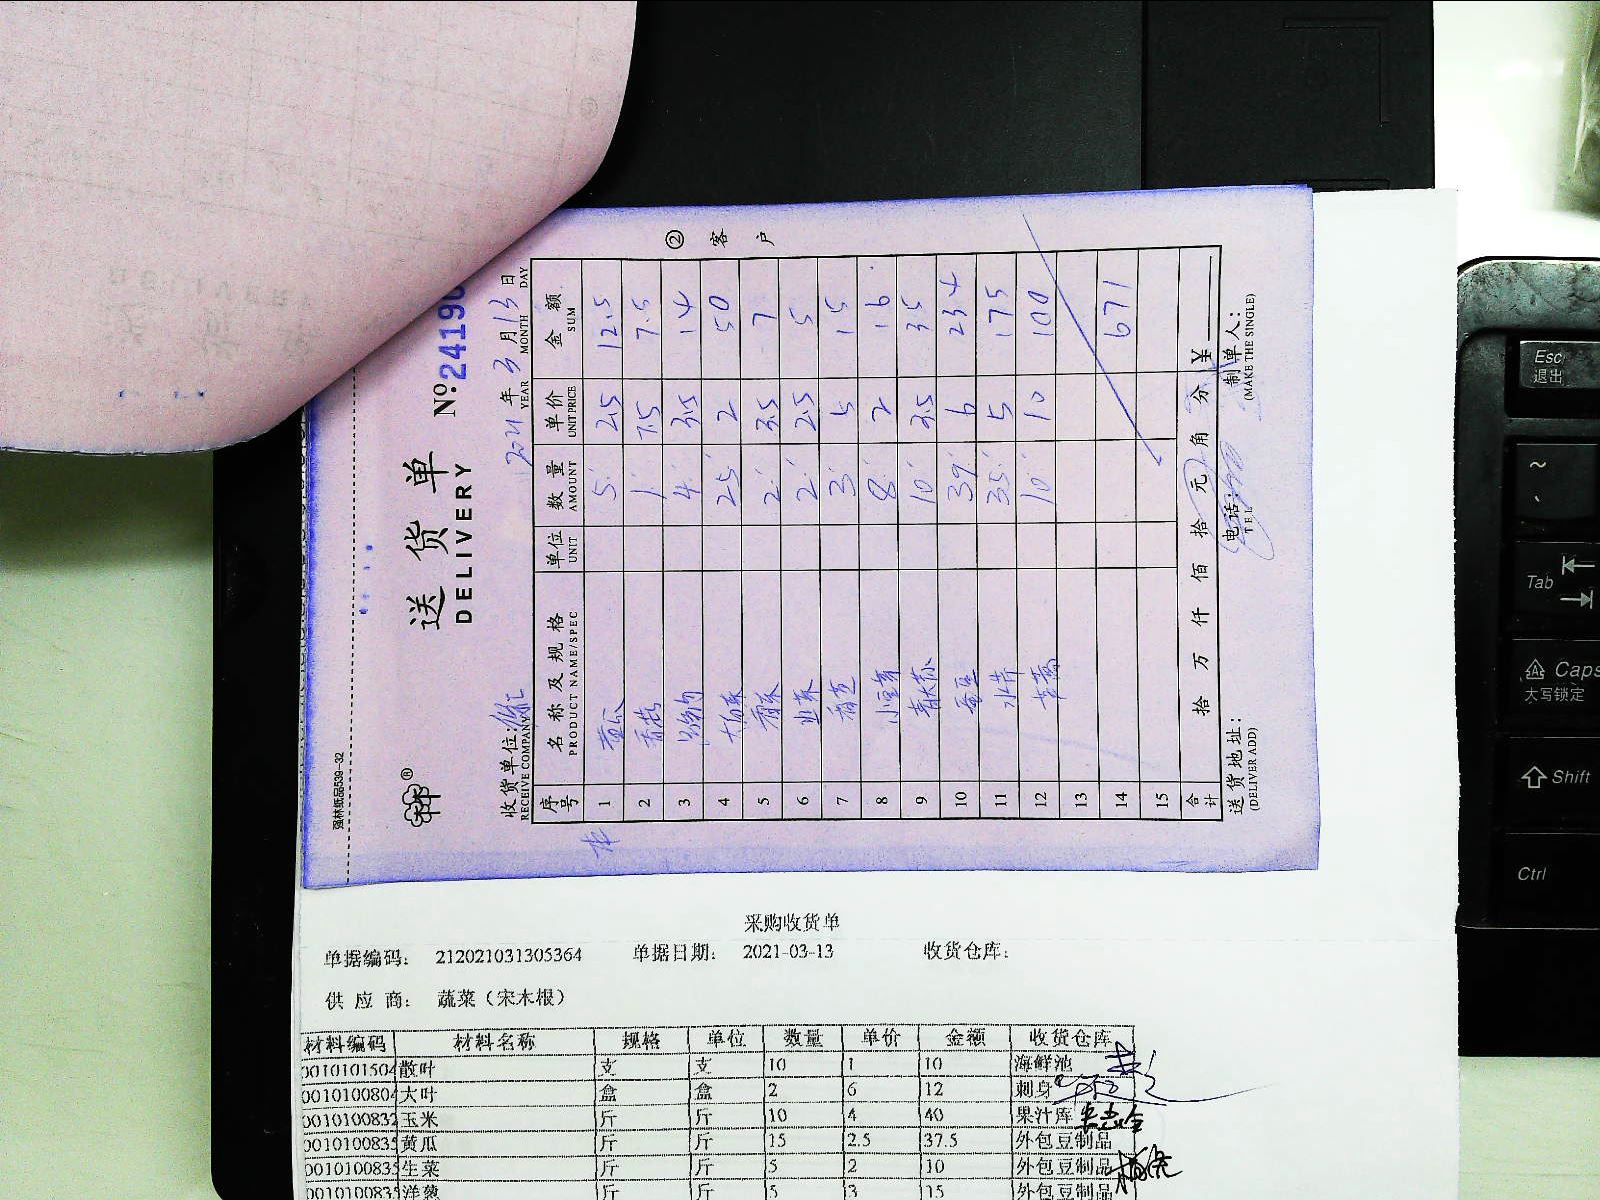 强林纸品539-32
送货单
DELIVERY
№ 24190
② 客户
收货单位:
RECEIVE COMPANY
2021 年 3 月 13 日
YEAR MONTH DAY
序号 名称及规格 单位 数量 单价 金额
PRODUCT NAME/SPEC UNIT AMOUNT UNIT PRICE SUM
1 黄瓜 5 2.5 12.5
2 1 7.5 7.5
3 4 3.5 14
4 25 2 50
5 2 3.5 7
6 2 2.5 5
7 3 5 15
8 8 2 16
9 10 3.5 35
10 39 6 234
11 水芹 35 5 175
12 10 10 100
13
14 671
15
合计 拾 万 仟 佰 拾 元 角 分 ¥
送货地址: 电话: 制单人:
(DELIVER ADD) TEL (MAKE THE SINGLE)
采购收货单
单据编码: 212021031305364 单据日期: 2021-03-13 收货仓库:
供应商: 蔬菜（宋木根）
材料编码 材料名称 规格 单位 数量 单价 金额 收货仓库
0010101504 散叶 支 支 10 1 10 海鲜池
0010100804 大叶 盒 盒 2 6 12 刺身
0010100832 玉米 斤 斤 10 4 40 果汁库
0010100835 黄瓜 斤 斤 15 2.5 37.5 外包豆制品
0010100835 生菜 斤 斤 5 2 10 外包豆制品
0010100835 洋葱 斤 斤 5 3 15 外包豆制品
Esc
退出
~
Tab
Caps
大写锁定
Shift
Ctrl